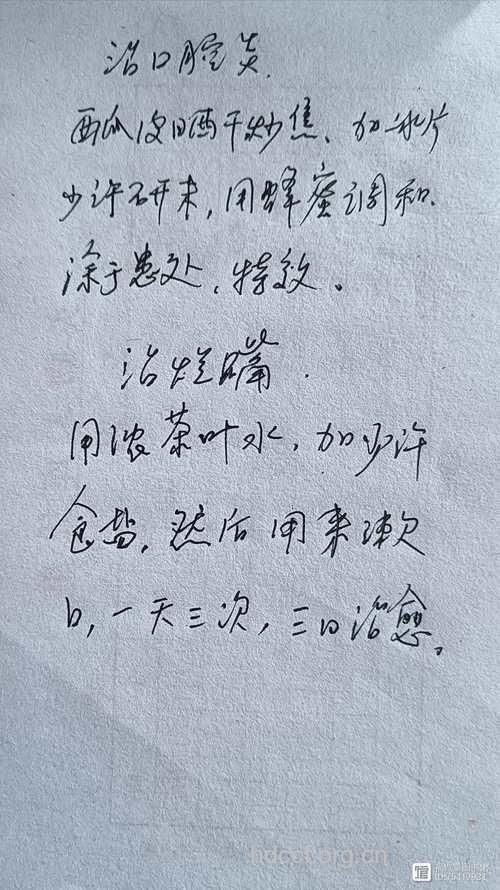 治口腔炎.
西瓜皮晒干炒焦、加冰片
少许研末,用蜂蜜调和.
涂于患处,特效。
治烂嘴.
用浓茶叶水,加少许
食盐,然后用来漱
口,一天三次,三日治愈。